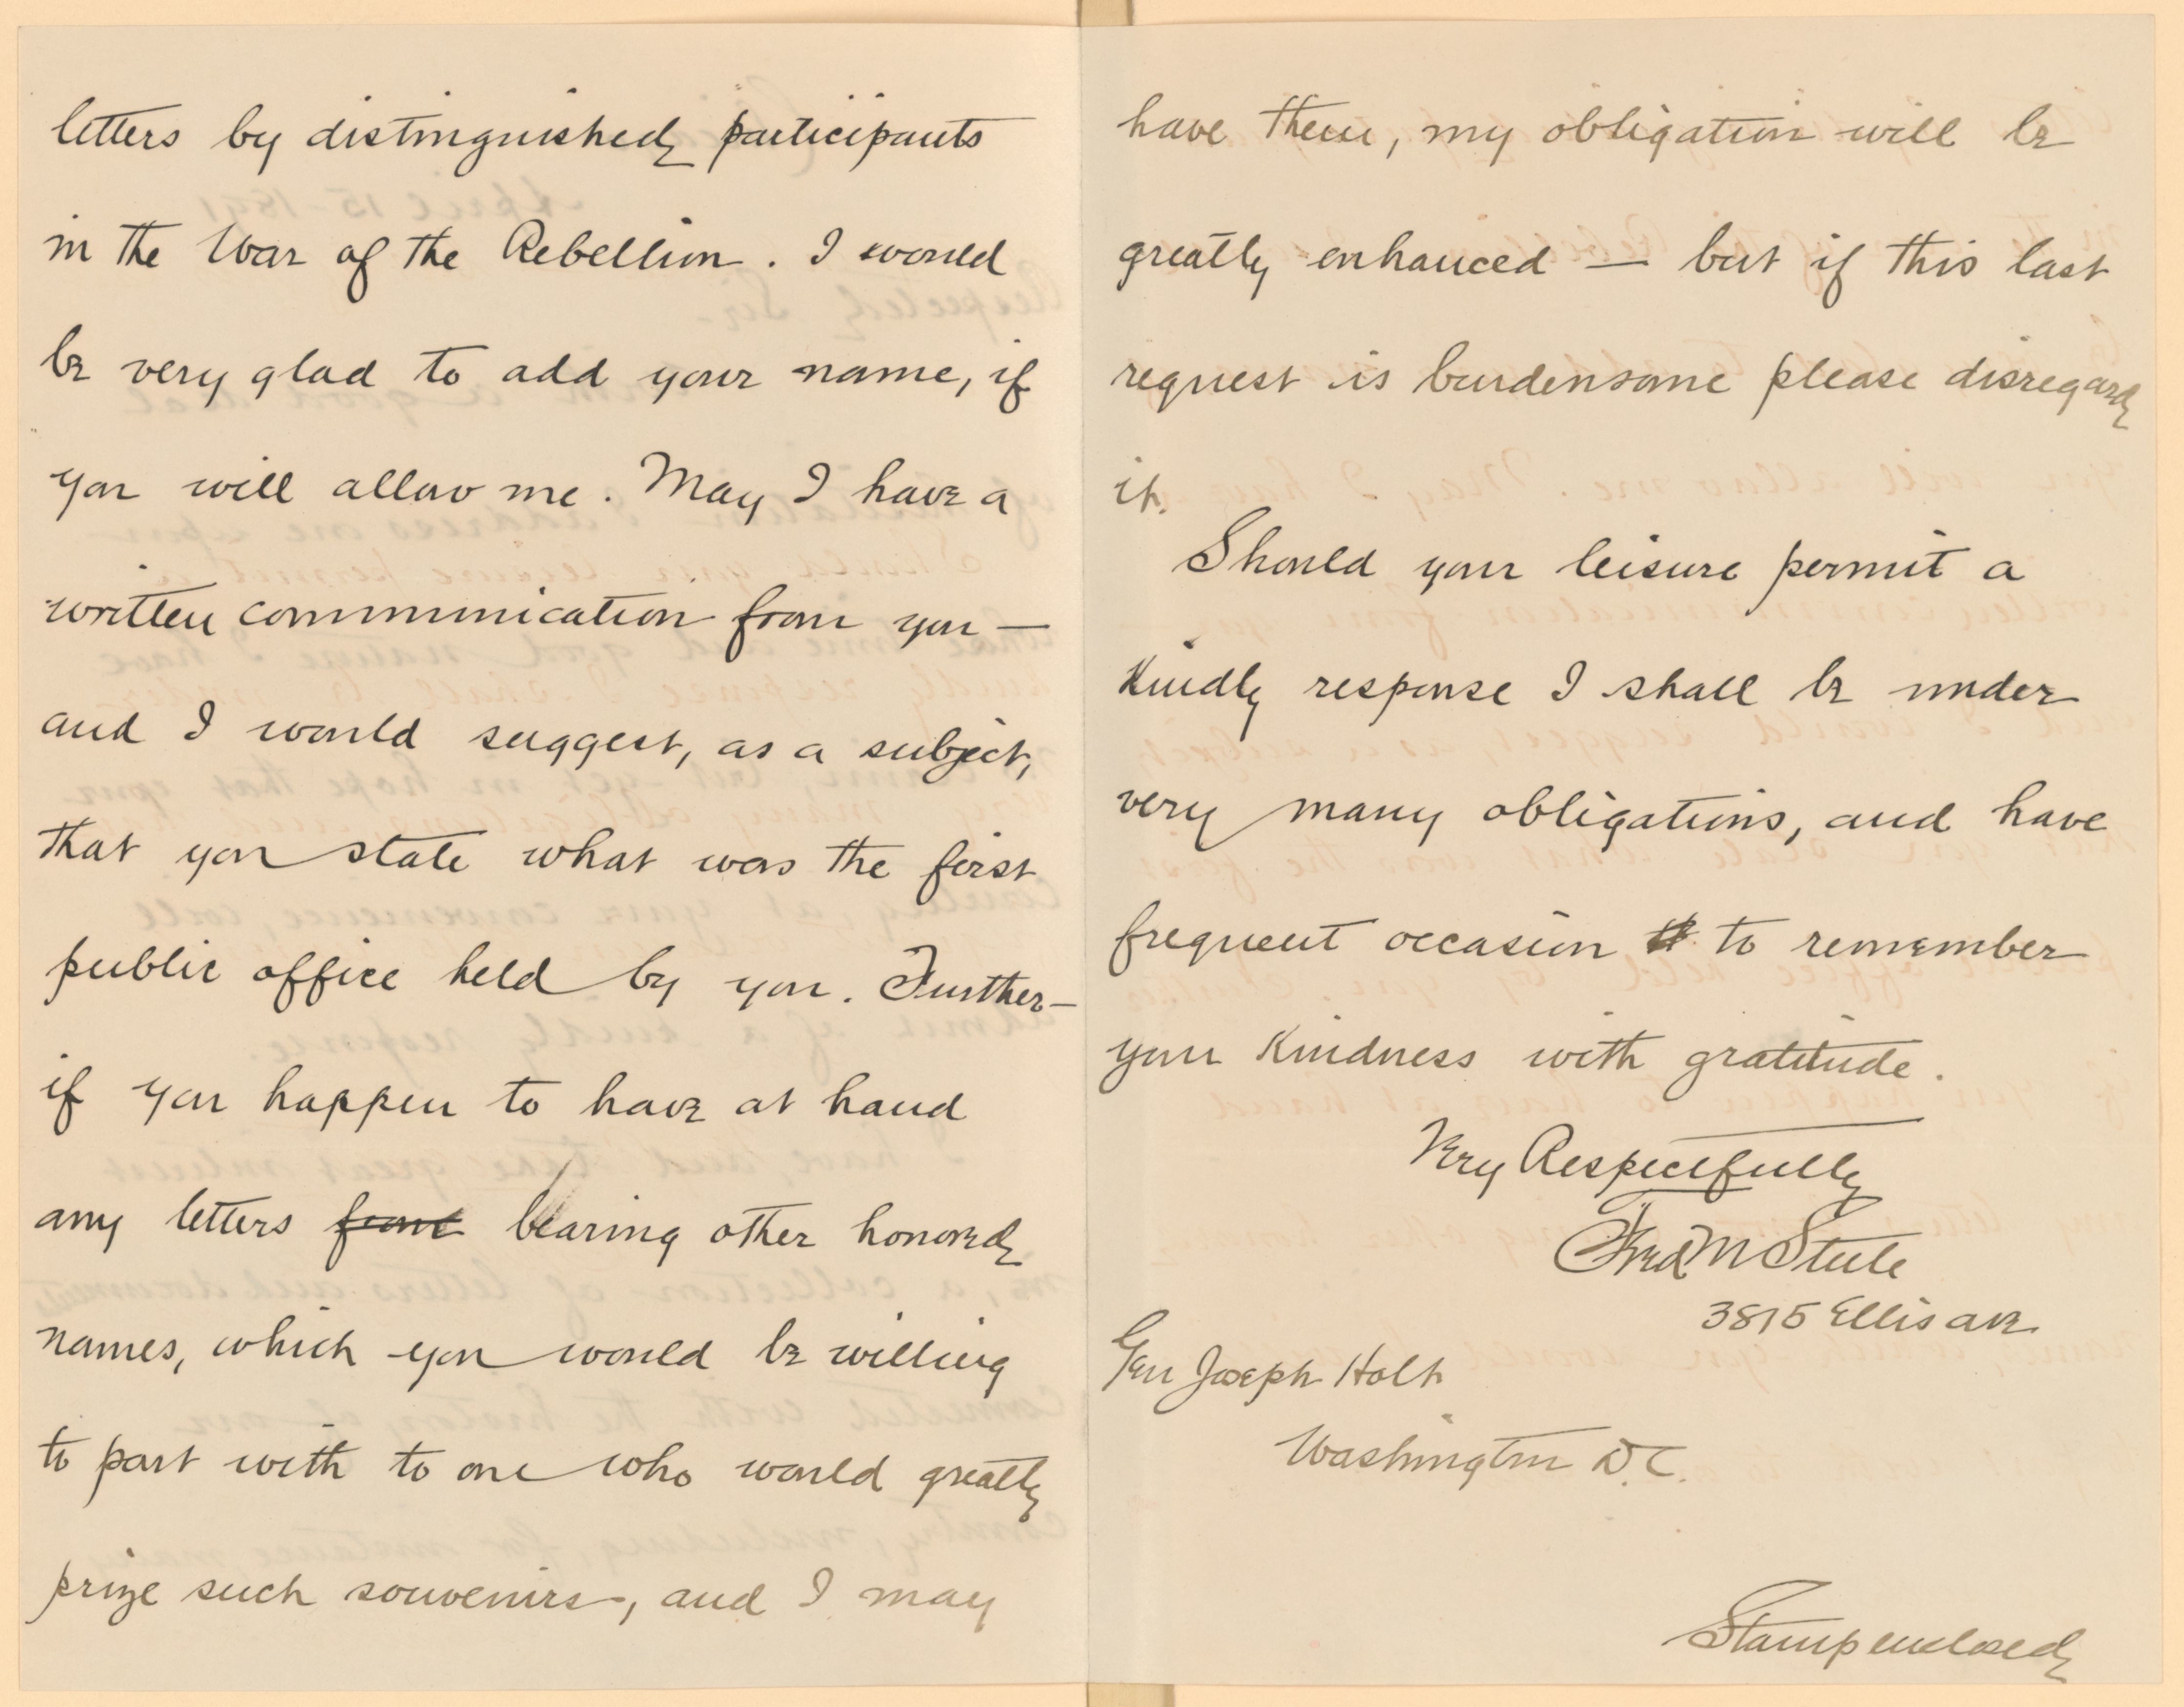 letters by distinguished participants
in the War of the Rebellion. I would
be very glad to add your name, if
you will allow me. May I have a
written communication from you —
and I would suggest, as a subject,
that you state what was the first
public office held by you. Further—
if you happen to have at hand
any letters from bearing other honored
names, which you would be willing
to part with to one who would greatly
prize such souvenirs, and I may
have them, my obligation will be
greatly enhanced — but if this last
request is burdensome please disregard
it.
Should your leisure permit a
kindly response I shall be under
very many obligations, and have
frequent occasion to remember
your kindness with gratitude.
Very Respectfully
Fred M Steele
3815 Ellis ave
Gen Joseph Holt
Washington D.C.
Stamp enclosed